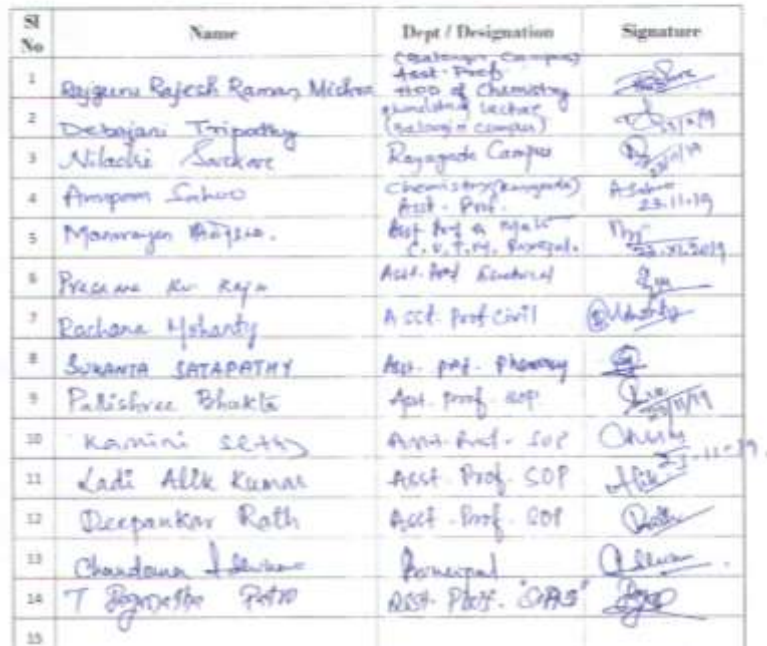 Sl No Name Dept / Designation Signature
1 Rajguru Rajesh Raman Mishra (Balangir Campus) Asst. Prof. HOD of Chemistry
2 Debajani Tripathy lecture (Balangir campus)
3 Niladri Sarkar Rayagada Campus
4 Anupam Sahoo Chemistry (Rayagada) Asst. Prof. A Sahoo 23.11.19
5 Asst Prof 23.XI.2019
6 Prasanna Kr Raja Asst. Prof Electrical
7 Rachana Mohanty Asst. Prof Civil
8 SUKANTA SATAPATHY Asst. prof. Pharmacy
9 Pallishree Bhakta Asst. prof. SOP 23/11/19
10 Kamini Sethy Asst. Prof. SOP 23-11-19
11 Ladi Alik Kumar Asst. Prof. SOP Alik
12 Deepankar Rath Asst. Prof. SOP Rath
13 Chandana Adhikari Principal
14 T Patro Asst. Prof.
15